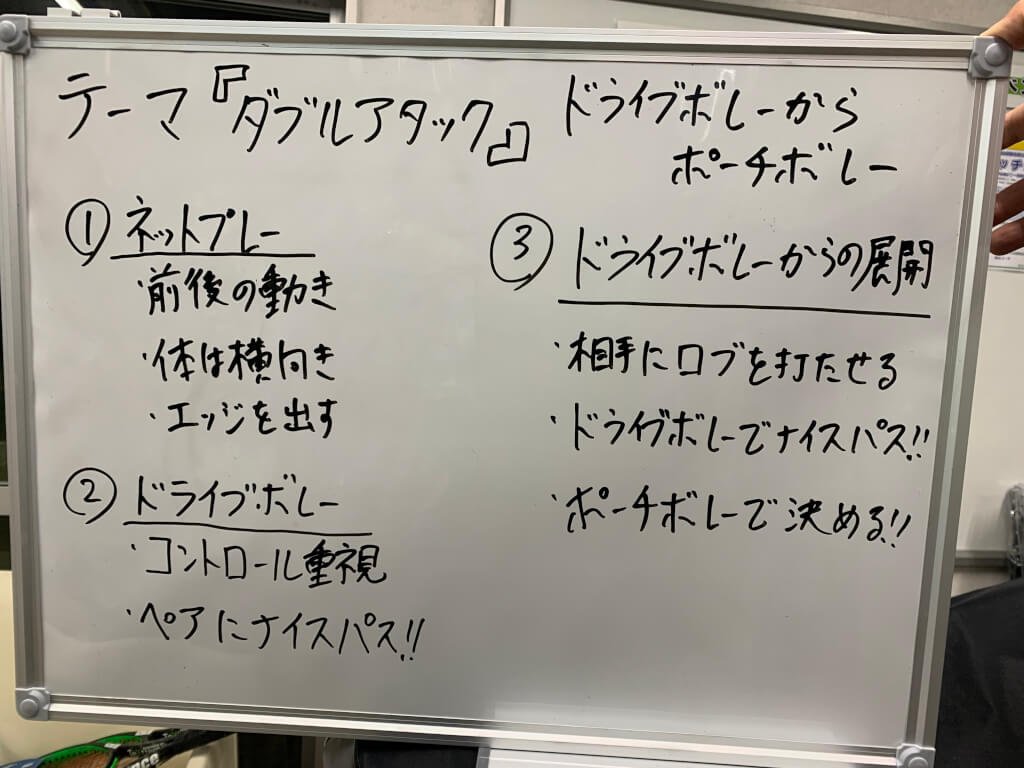 テーマ『ダブルアタック』
ドライブボレーから
ポーチボレー
① ネットプレー
・前後の動き
・体は横向き
・エッジを出す
② ドライブボレー
・コントロール重視
・ペアにナイスパス!!
③ ドライブボレーからの展開
・相手にロブを打たせる
・ドライブボレーでナイスパス!!
・ポーチボレーで決める!!